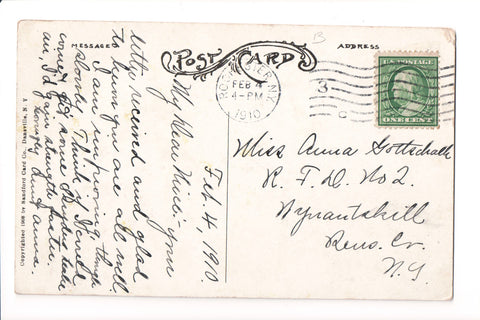 MESSAGE
POST CARD
ADDRESS
B
ROCHESTER, N.Y.
FEB 4
4-PM
1910
3
C
U.S. POSTAGE
ONE CENT
Feb. 4, 1910.
My Dear Niece: Your
letter received and glad
to know you are all well.
I am improving, though
slowly. Think if I could
come & get some
air, I'd gain strength faster.
Lovingly Aunt Anna.
Miss Anna Gottschalk
R. F. D. No 2.
Wynantskill
Rens. Co.
N.Y.
Copyrighted 1906 by Sandford Card Co., Dansville, N.Y.